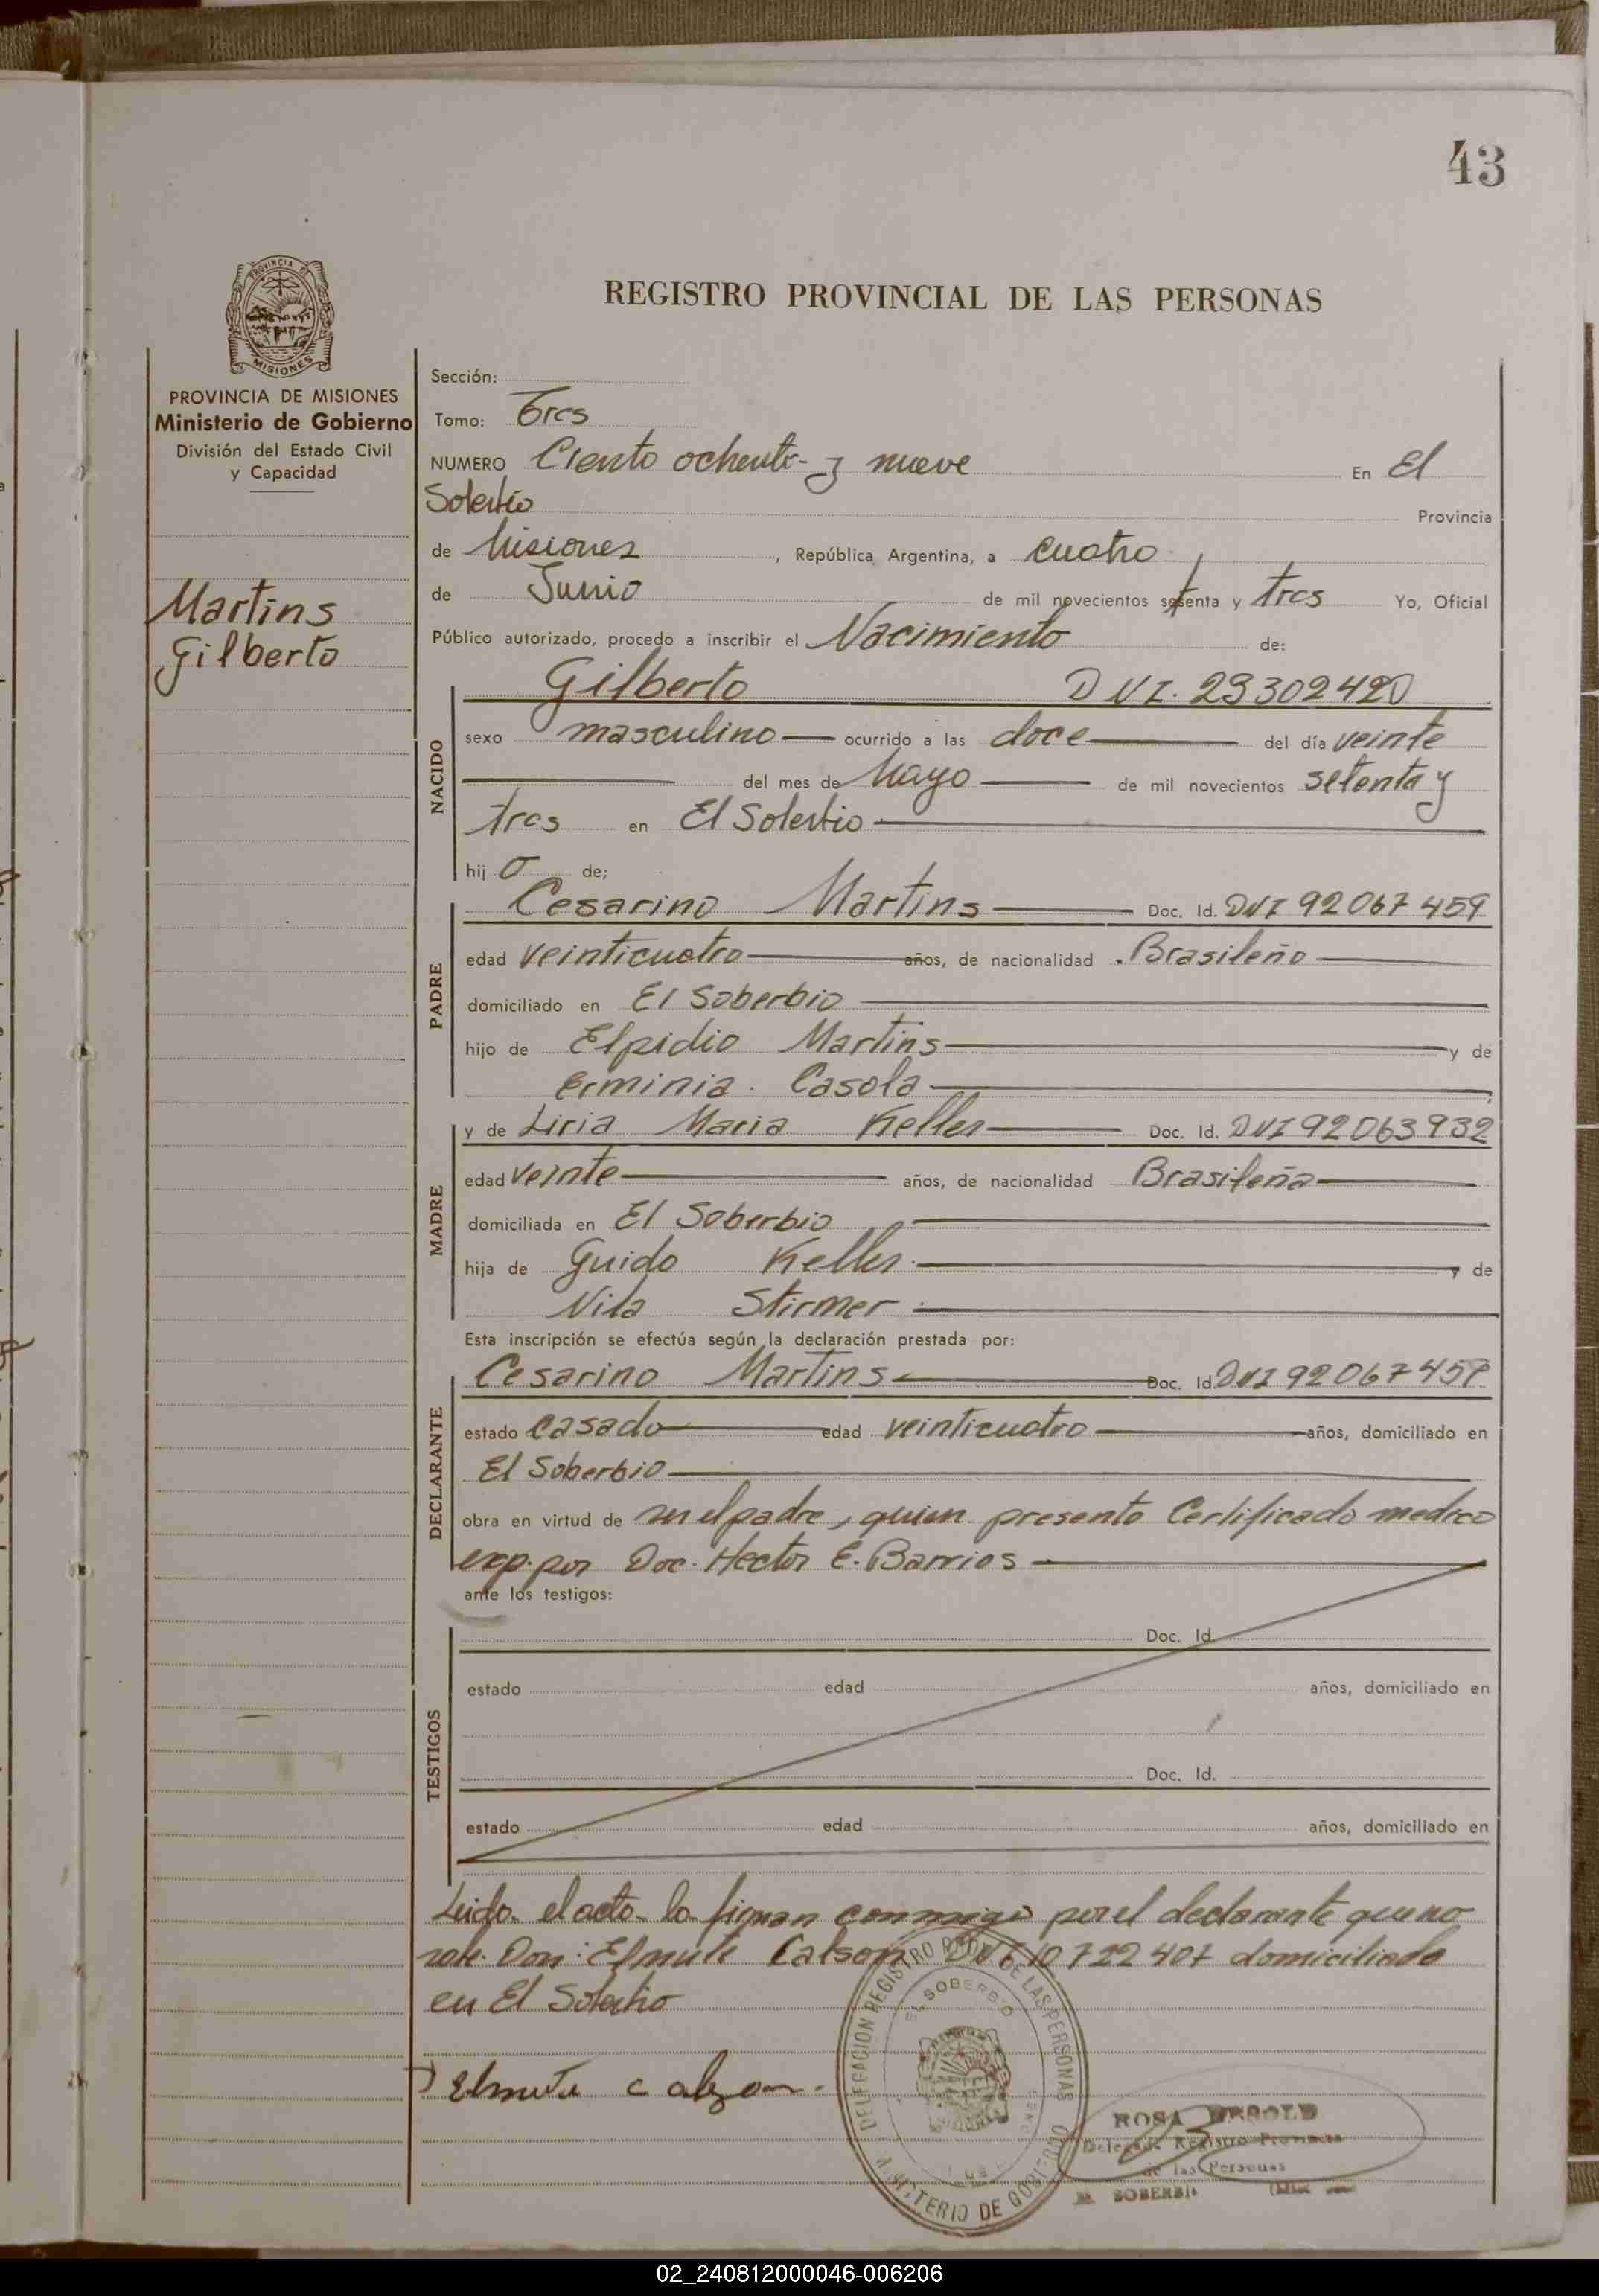 43
PROVINCIA DE
MISIONES
REGISTRO PROVINCIAL DE LAS PERSONAS
PROVINCIA DE MISIONES
Ministerio de Gobierno
División del Estado Civil
y Capacidad
Martins
Gilberto
Sección:
Tomo: Tres
NUMERO Ciento ochenta y nueve En El
Soberbio Provincia
de Misiones, República Argentina, a cuatro
de Junio de mil novecientos setenta y tres Yo, Oficial
Público autorizado, procedo a inscribir el Nacimiento de:
NACIDO
Gilberto DNI. 23302420
sexo masculino ocurrido a las doce del día veinte
del mes de Mayo de mil novecientos setenta y
tres en El Soberbio
hij o de;
PADRE
Cesarino Martins Doc. Id. DNI 92067459
edad veinticuatro años, de nacionalidad Brasileño
domiciliado en El Soberbio
hijo de Elpidio Martins y de
Erminia Casola
MADRE
y de Liria Maria Keller Doc. Id. DNI 92063932
edad veinte años, de nacionalidad Brasileña
domiciliada en El Soberbio
hija de Guido Keller y de
Nila Stirmer
Esta inscripción se efectúa según la declaración prestada por:
DECLARANTE
Cesarino Martins Doc. Id. DNI 92067459
estado casado edad veinticuatro años, domiciliado en
El Soberbio
obra en virtud de ser el padre, quien presento Certificado medico
exp. por Doc. Hector E. Barrios
ante los testigos:
TESTIGOS
Doc. Id.
estado edad años, domiciliado en
Doc. Id.
estado edad años, domiciliado en
Leido el acto lo firman conmigo por el declarante que no
sabe Don: Elmute Calson DNI 10722407 domiciliado
en El Soberbio
Elmute Calzon.
DELEGACION REGISTRO PROV. DE LAS PERSONAS
EL SOBERBIO
MINISTERIO DE GOBIERNO
ROSA
Delegada Registro Provincial
de las Personas
EL SOBERBIO
02_240812000046-006206